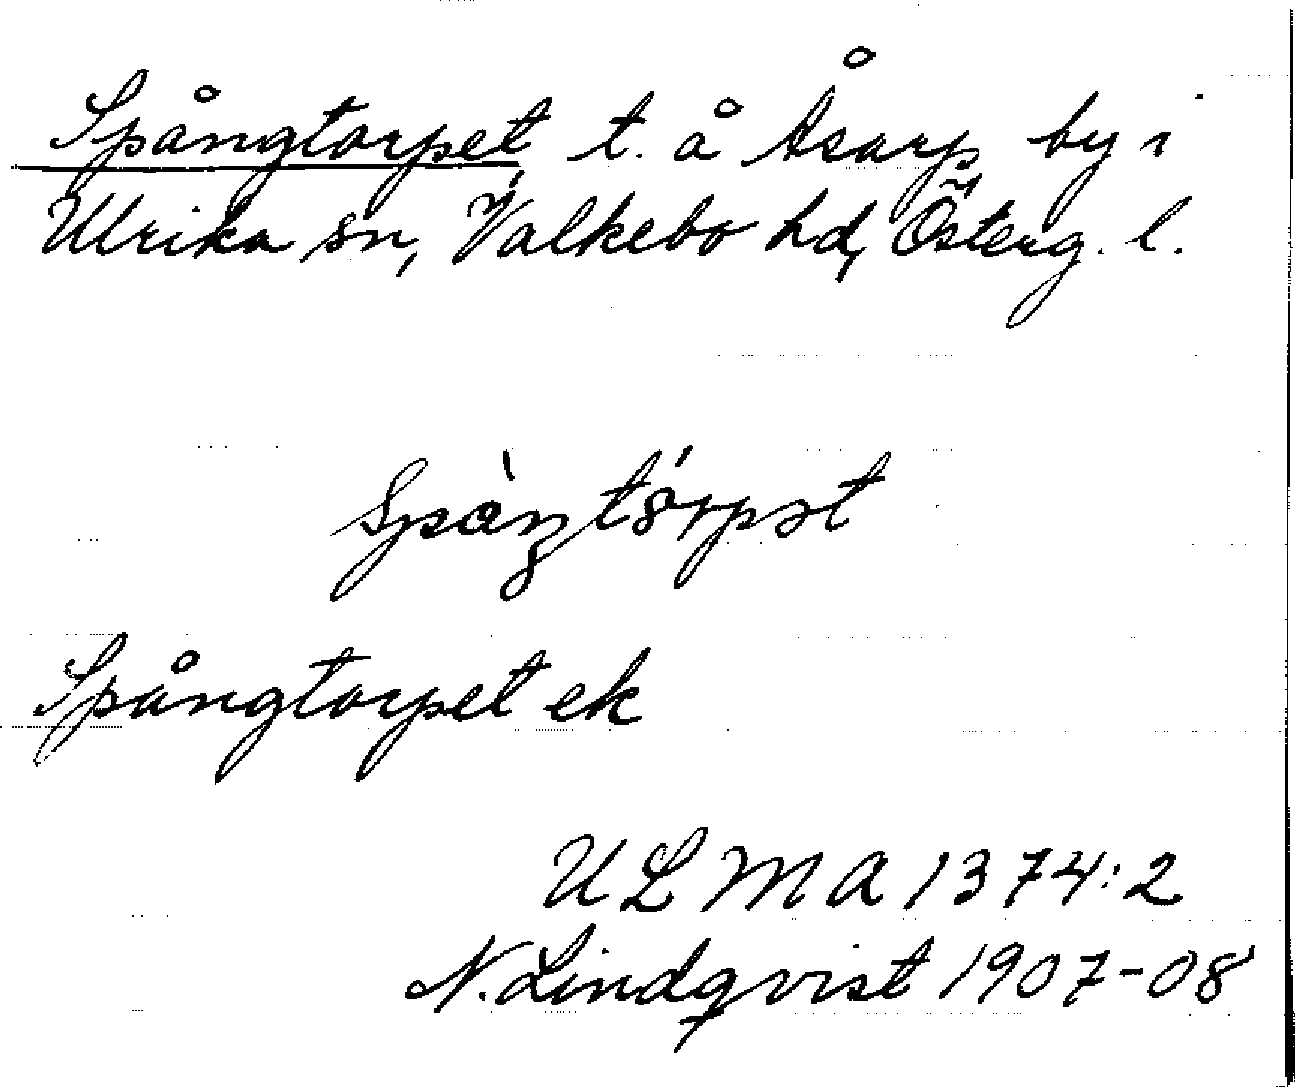 Spångtorpet, t. å Åsarp by i
Ulrika sn, Valkebo hd, Österg. l.
Spångtorpet ek
ULMA 1374:2
N. Lindqvist 1907-08